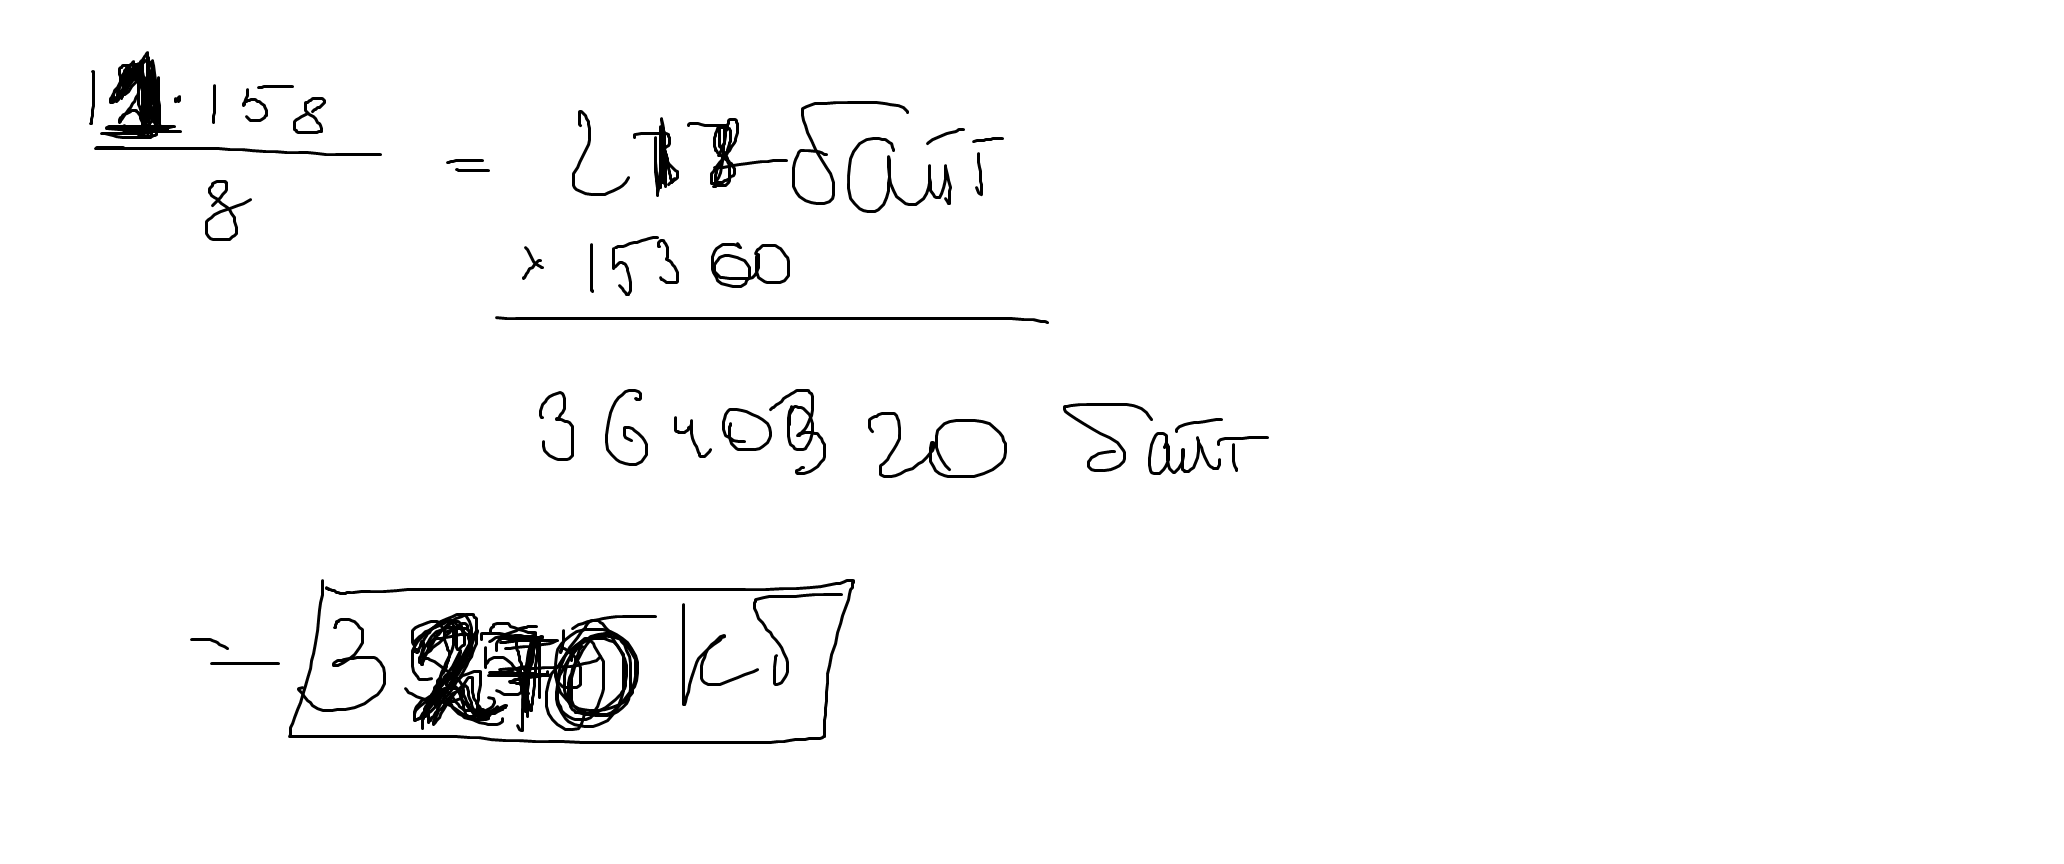 11·158
8
= 218 байт
x 15360
3640320 байт
= 3270 Кб